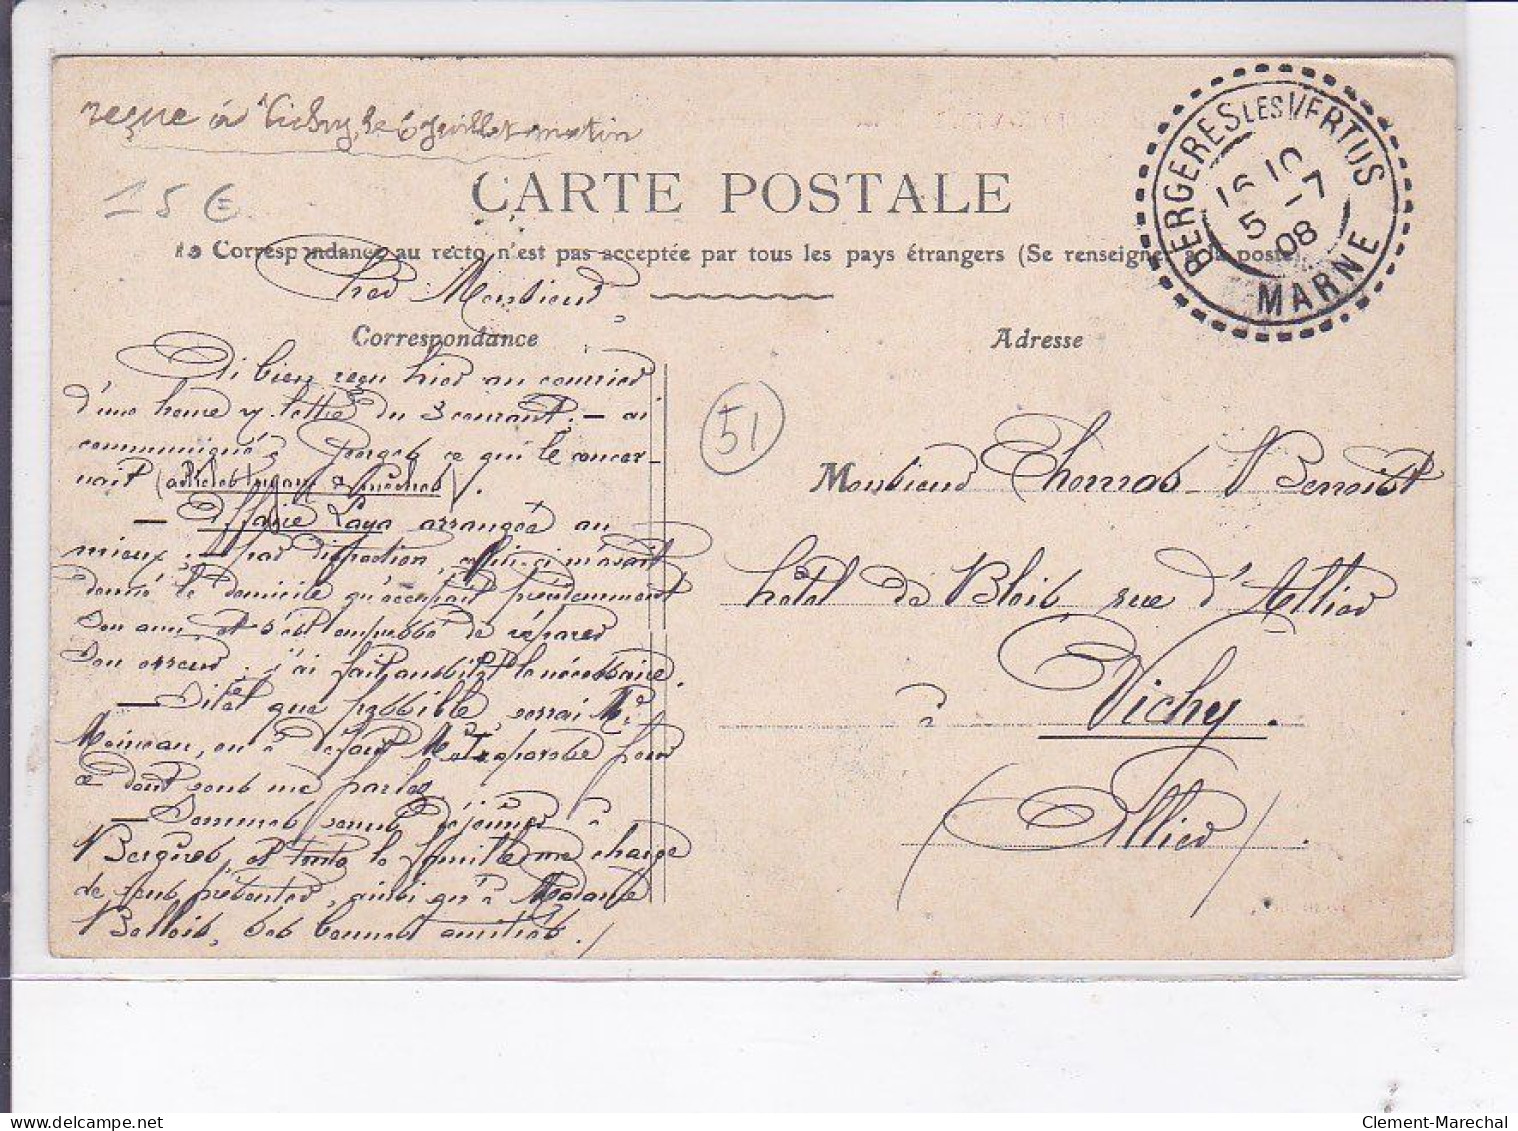 reçue à Vichy, le 6 Juillet matin
15 €
CARTE POSTALE
La Correspondance au recto n'est pas acceptée par tous les pays étrangers (Se renseigner à la poste).
BERGERES LES VERTUS
16 10
5 -7
08
MARNE
Cher Monsieur
Correspondance
Ai bien reçu hier au courrier
d'une heure votre lettre du 3 courant. — ai
communiqué à Georges ce qui le concer-
nait
— Affaire Laya arrangée au
mieux. — par distraction, celui-ci m'avait
donné le domicile qu'occupait précédemment
son ami et s'est empressé de réparer
son erreur. j'ai fait aussitôt le nécessaire.
— Sitôt que possible, verrai Mr
Moineau, ou à défaut pour
ce dont vous me parlez
— Sommes venus déjeuner à
Bergères, et toute la famille me charge
de vous présenter, ainsi qu'à Madame
ses bonnes amitiés.
Adresse
51
Monsieur Thomas Benoist
hôtel de Blois, rue d'Allier
à Vichy.
(Allier)
www.delcampe.net
Clement-Marechal